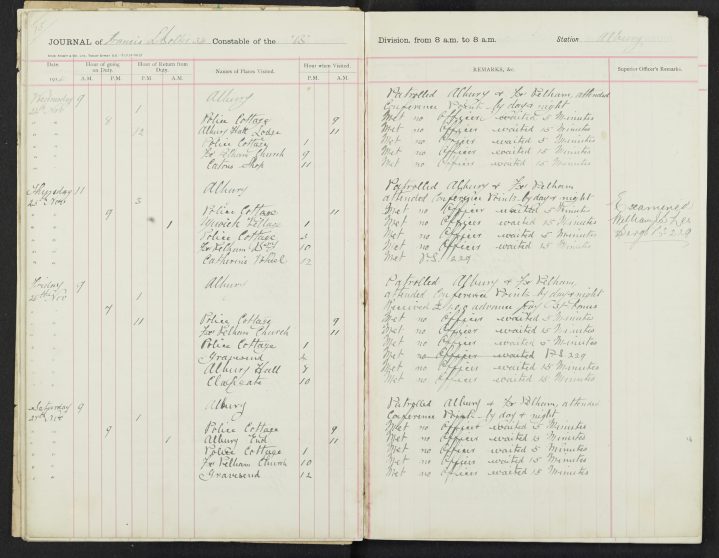 JOURNAL of Francis Constable of the "B" Division, from 8 a.m. to 8 a.m. Station Albury
Date Hour of going on Duty. Hour of Return from Duty. Names of Places Visited. Hour when Visited. REMARKS, &c. Superior Officer's Remarks.
A.M. P.M. A.M. P.M. P.M. A.M.
Wednesday 9 Albury Patrolled Albury & Fx Pelham, attended
1 Conference Points by day & night
8 Police Cottage 9 Met no Officer waited 5 Minutes
12 Albury Hall Lodge 11 Met no Officer waited 15 Minutes
Police Cottage 1 Met no Officer waited 5 Minutes
Fx Pelham Church 9 Met no Officer waited 15 Minutes
Eatons Shop 11 Met no Officer waited 15 Minutes
Thursday 11 Albury Patrolled Albury & Fx Pelham
25th Nov attended Conference Points by day & night
9 Police Cottage 11 Met no Officer waited 5 Minutes Examined
1 Cottage 1 Met no Officer waited 15 Minutes
Police Cottage 3 Met no Officer waited 5 Minutes 229
Fx Pelham 10 Met no Officer waited 15 Minutes
Catherine Wheel 12 Met P.S. 229
Friday 9 Albury Patrolled Albury & Fx Pelham,
26th Nov 1 attended Conference Points by day & night
Received advance
11 Police Cottage 9 Met no Officer waited 5 Minutes
Fx Pelham Church 11 Met no Officer waited 15 Minutes
Police Cottage 1 Met no Officer waited 5 Minutes
Gravesend Met no Officer waited P.S 229
Albury Hall 8 Met no Officer waited 15 Minutes
Clapgate 10 Met no Officer waited 15 Minutes
Saturday 9 Albury Patrolled Albury & Fx Pelham, attended
27th Nov Conference Points by day & night
9 Police Cottage 9 Met no Officer waited 5 Minutes
1 Albury End 11 Met no Officer waited 15 Minutes
Police Cottage 1 Met no Officer waited 5 Minutes
Fx Pelham Church 10 Met no Officer waited 15 Minutes
Gravesend 12 Met no Officer waited 15 Minutes